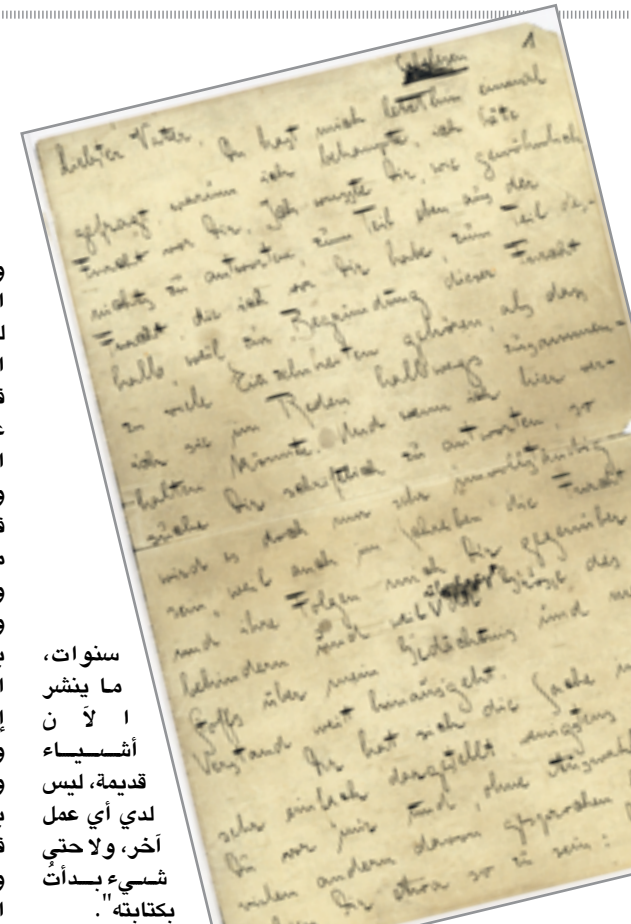 Schelesen
1
Liebster Vater,
Du hast mich letzthin einmal
gefragt, warum ich behaupte, ich hätte
Furcht vor Dir. Ich wusste Dir, wie gewöhnlich
nichts zu antworten, zum Teil eben aus der
Furcht die ich vor Dir habe, zum Teil des-
halb, weil zur Begründung dieser Furcht
zu viele Einzelnheiten gehören, als dass
ich sie im Reden halbwegs zusammen-
halten könnte. Und wenn ich hier ver-
suche Dir schriftlich zu antworten, so
wird es doch nur sehr unvollständig
sein, weil auch im Schreiben die Furcht
und ihre Folgen mich Dir gegenüber
behindern und weil die Grösse des
Stoffs über mein Gedächtnis und
Verstand weit hinausgeht.
Dir hat sich die Sache
sehr einfach dargestellt wenigstens
Du vor mir und, ohne Auswahl
vielen andern davon gesprochen
Dir etwa so zu sein:
سنوات،
ما ينشر
الآن
أشياء
قديمة، ليس
لدي أي عمل
آخر، ولا حتى
شيء بدأتُ
بكتابته".